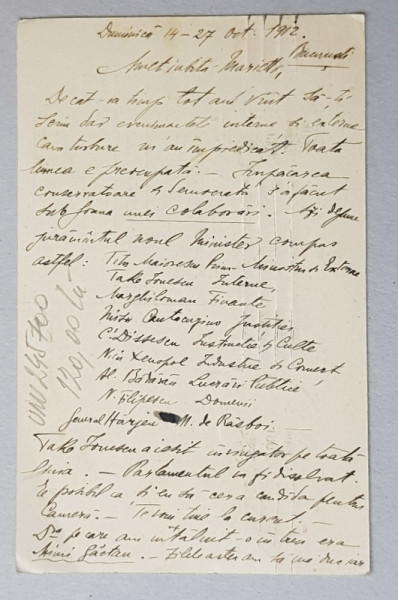 Duminică 14-27 Oct. 1912.
București
Mult iubită Marietta,
De cât-va timp tot am vrut să-ți
scriu dar evenimentele interne și externe
m'au împiedicat. Toată
lumea e preocupată. - Împăcarea
conservatoare și democrată s'a făcut
sub forma unei colaborări. Azi depune
jurământul noul Minister compus
astfel: Titu Maiorescu Prim Ministru și Externe
Take Ionescu Interne,
Marghiloman Finante
Cantacuzino Justiție
C. Dissescu Instrucție și Culte
Nicu Xenopol Industrie și Comerț
Al. Bădărău Lucrări Publice
N. Filipescu Domenii
General Hârjeu M. de Rasboi
Take Ionescu a iesit învingător pe toată
linia. - Parlamentul va fi disolvat.
E posibil ca și eu să candida pentru
Cameră. - Te voi ține la curent. -
D-na pe care am întâlnit-o în tren era
Mimi Găetan. - să mă duc iar
UNIV 245700
120,00 lei